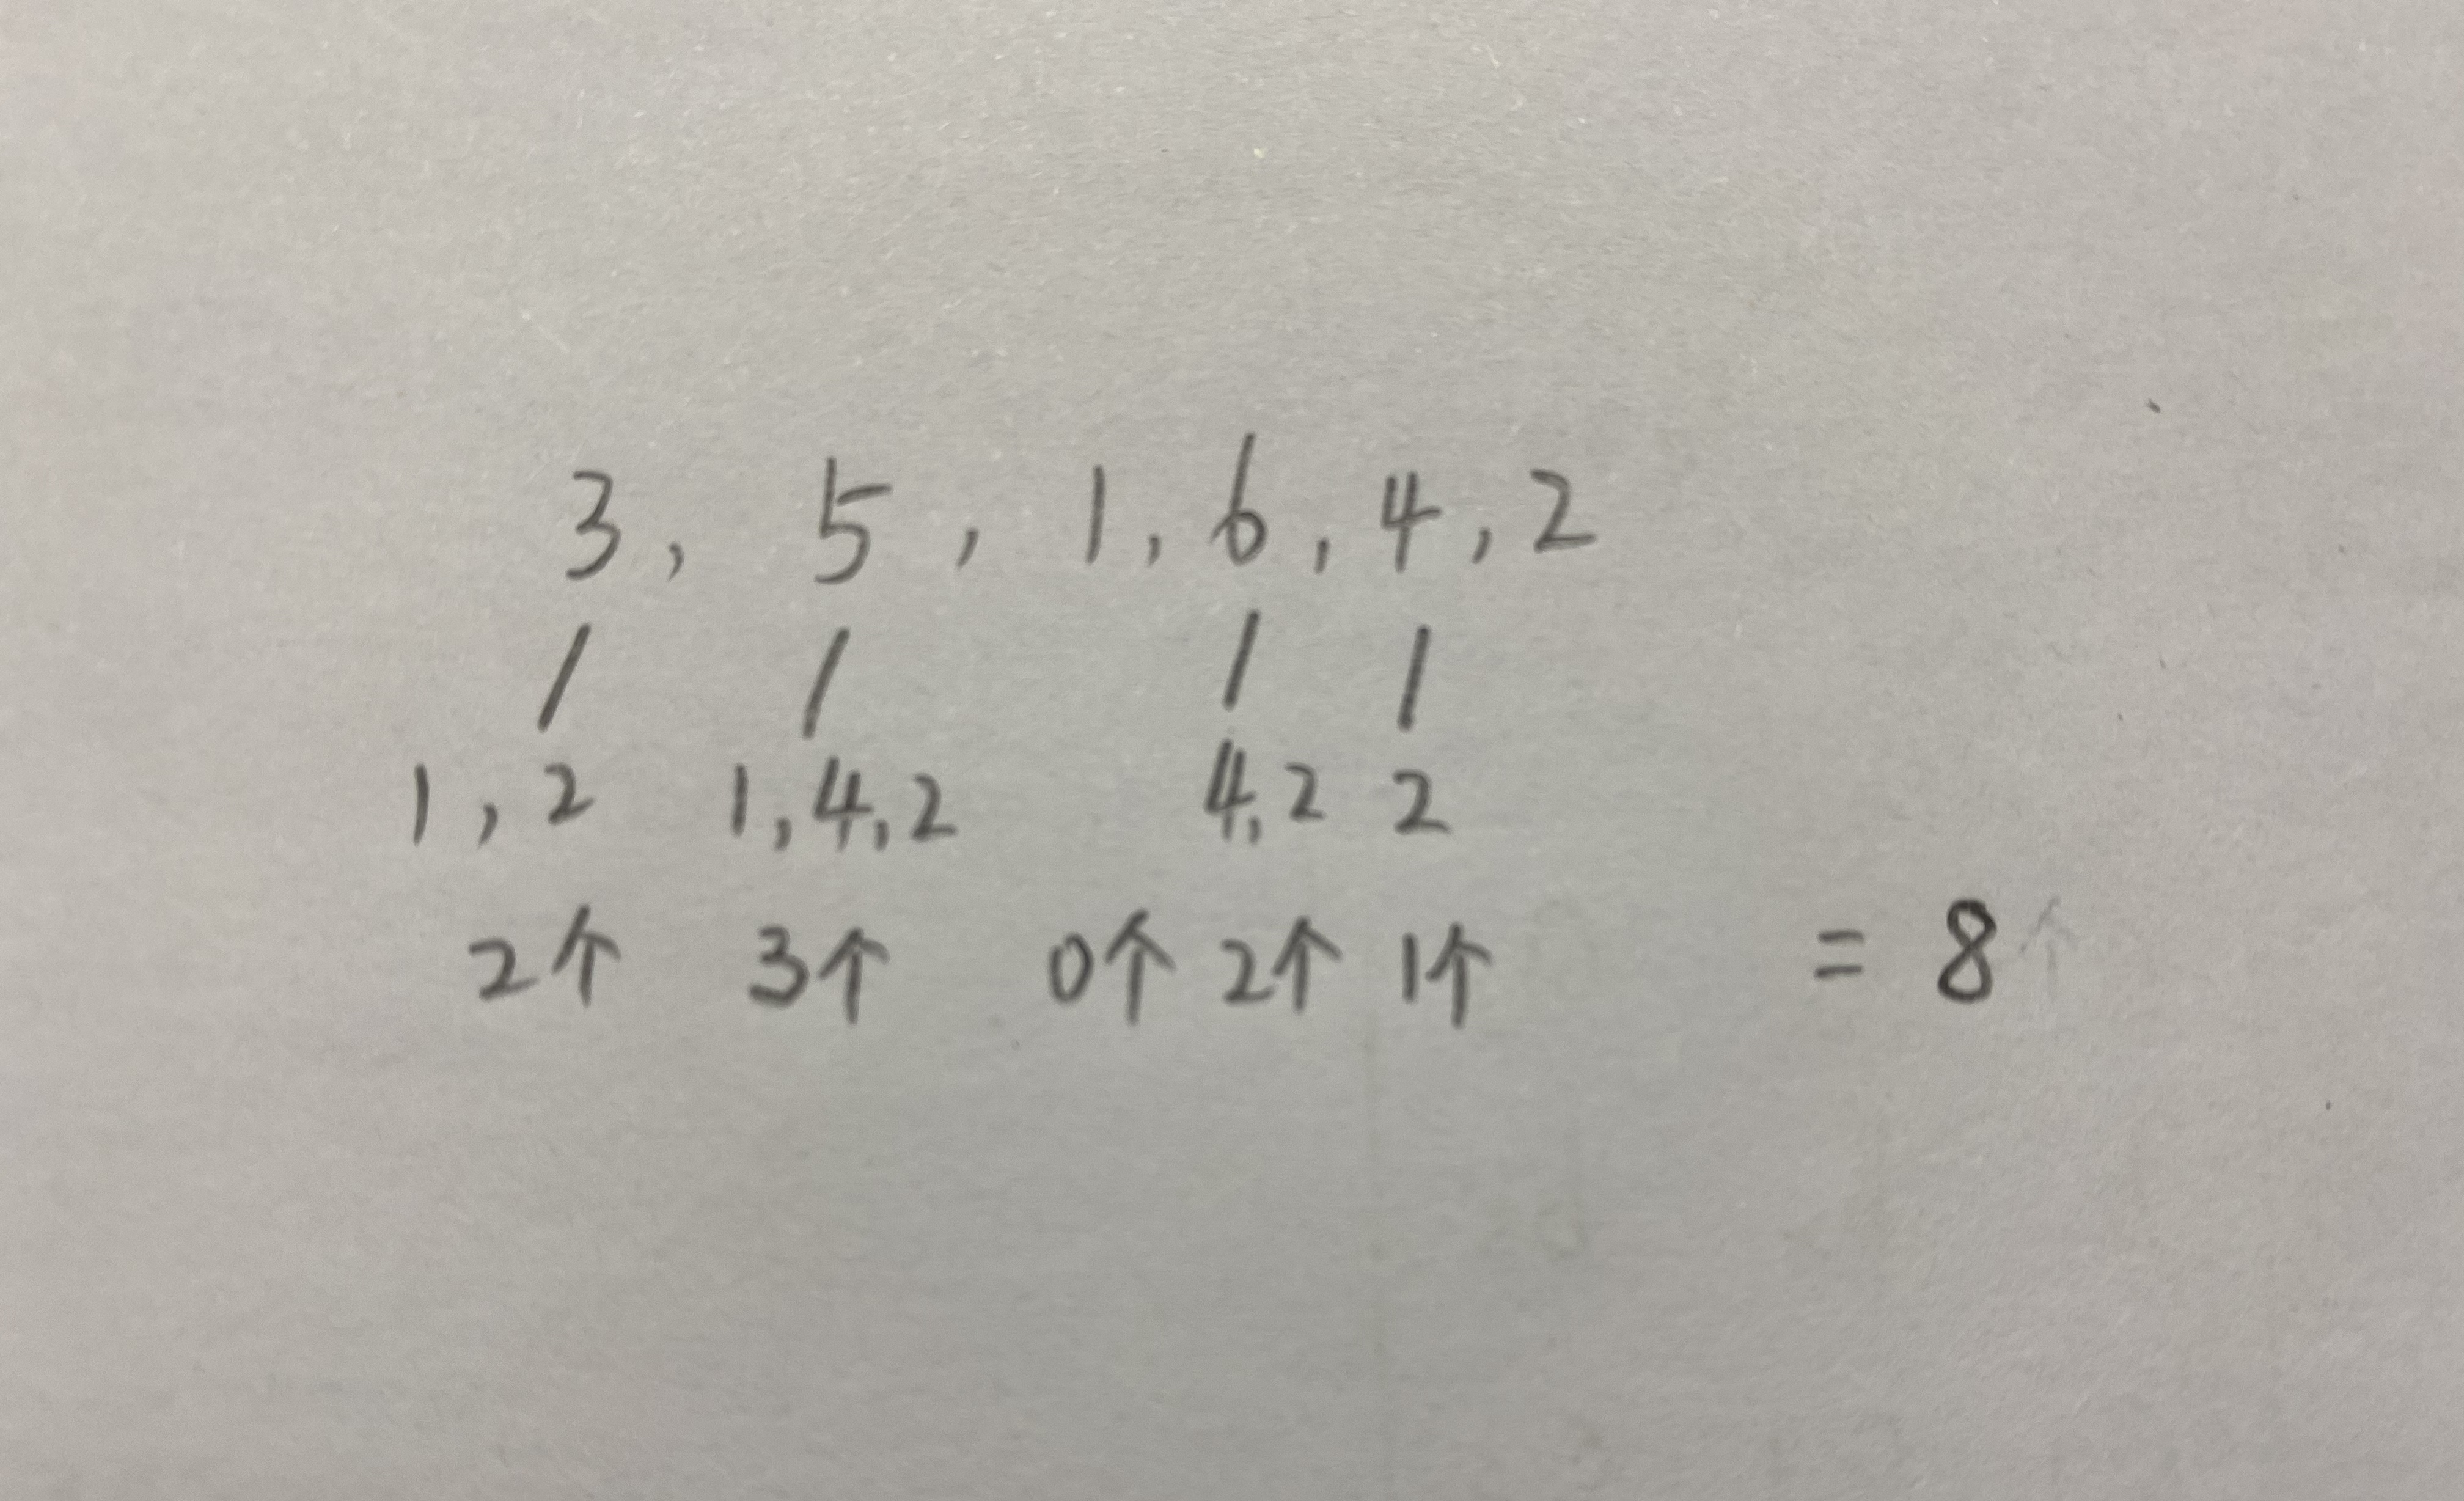 3, 5, 1, 6, 4, 2
1, 2 1, 4, 2 4, 2 2
2个 3个 0个 2个 1个 = 8个